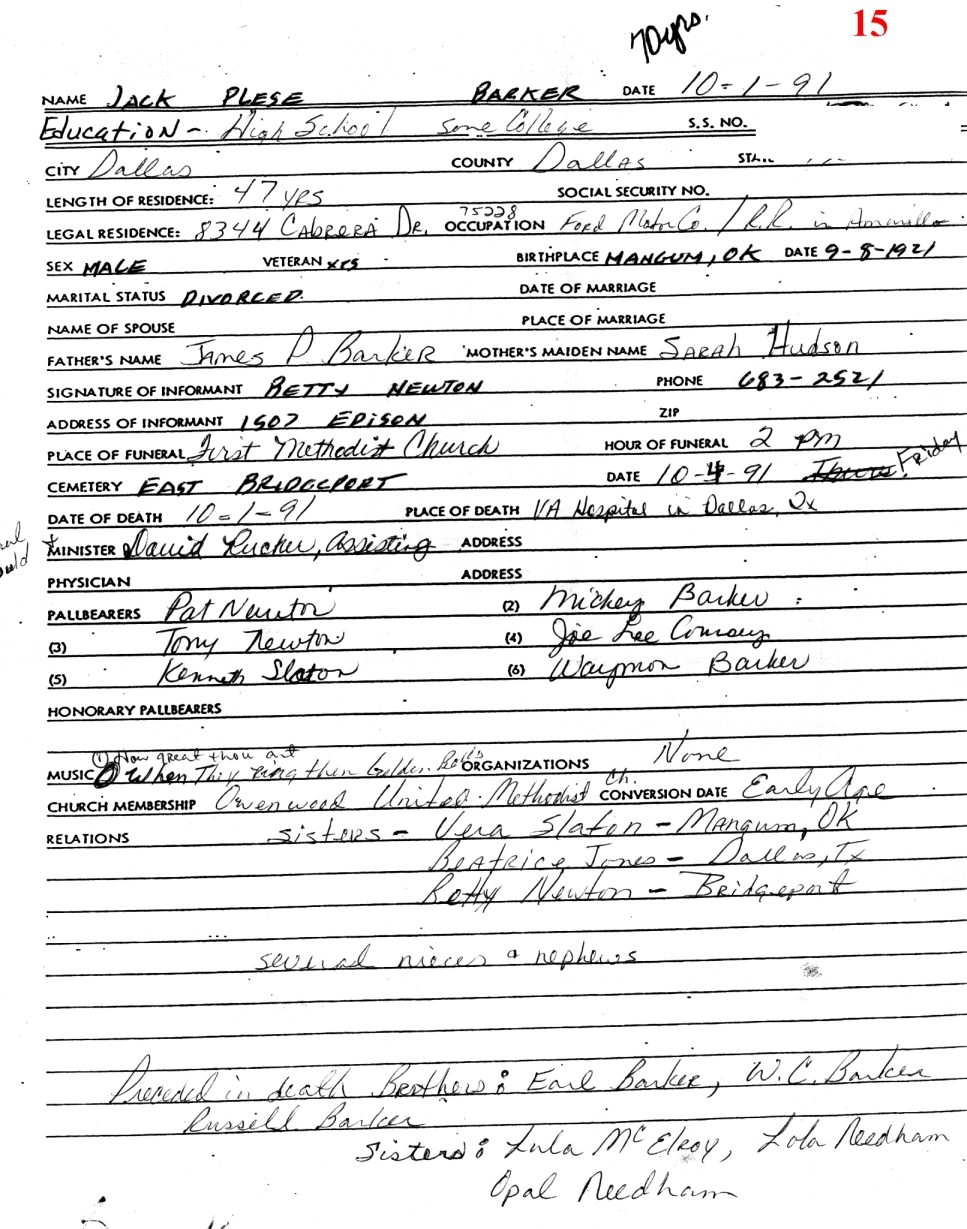 70 yrs. 15
NAME JACK PLESE BARKER DATE 10-1-91
Education - High School Some College S.S. NO.
CITY Dallas COUNTY Dallas
LENGTH OF RESIDENCE: 47 yrs SOCIAL SECURITY NO.
LEGAL RESIDENCE: 8344 CABRERA DR. 75228 OCCUPATION Ford Motor Co. / R.R. in Amarillo
SEX MALE VETERAN YES BIRTHPLACE MANGUM, OK DATE 9-8-1921
MARITAL STATUS DIVORCED. DATE OF MARRIAGE
NAME OF SPOUSE PLACE OF MARRIAGE
FATHER'S NAME James P Barker MOTHER'S MAIDEN NAME SARAH Hudson
SIGNATURE OF INFORMANT BETTY NEWTON PHONE 683-2521
ADDRESS OF INFORMANT 1507 EDISON ZIP
PLACE OF FUNERAL First Methodist Church HOUR OF FUNERAL 2 pm
CEMETERY EAST BRIDGEPORT DATE 10-4-91 Thurs. Friday
DATE OF DEATH 10-1-91 PLACE OF DEATH VA Hospital in Dallas, Tx
MINISTER David Rucker, assisting ADDRESS
PHYSICIAN ADDRESS
PALLBEARERS Pat Newton (2) Mickey Barker
(3) Tony Newton (4) Joe Lee Conway
(5) Kenneth Slaton (6) Waymon Barker
HONORARY PALLBEARERS
(1) How great thou art
MUSIC When They ring then Golden Bells ORGANIZATIONS None
CHURCH MEMBERSHIP Owenwood United Methodist Ch. CONVERSION DATE Early Age
RELATIONS sisters - Vera Slaton - Mangum, OK
Beatrice Jones - Dallas, Tx
Betty Newton - Bridgeport
several nieces & nephews
Preceded in death Brothers: Earl Barker, W.C. Barker
Russell Barker
Sisters: Lula McElroy, Lola Needham
Opal Needham